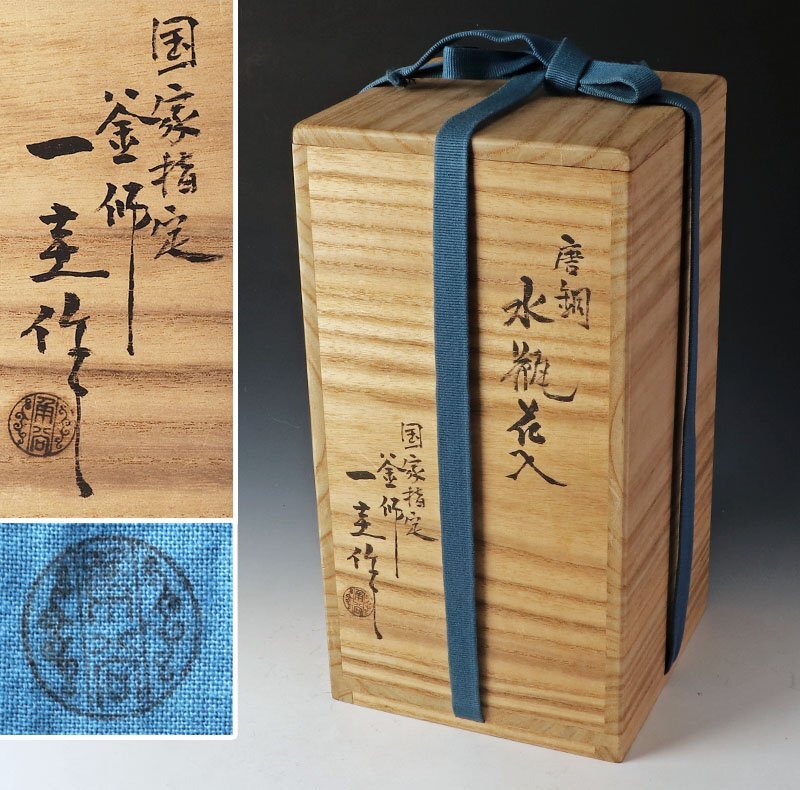 国家指定
釜師
一圭作
角谷
唐銅
水瓶花入
国家指定
釜師
一圭作
角谷